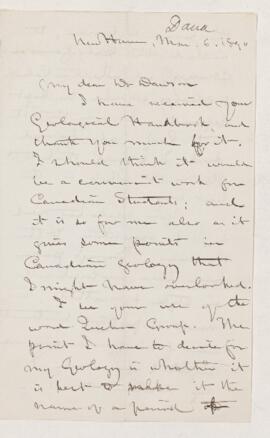 Dana
New Haven, Mar. 6. 1890
My dear Dr Dawson
I have received your
Geological Handbook and
thank you much for it.
I should think it would
be a convenient work for
Canadian Students; and
it is so for me also as it
gives some points in
Canadian geology that
I might have overlooked.
I see your use of the
word Group. The
point I have to decide for
my Geology is whether it
is best to make it the
name of a period